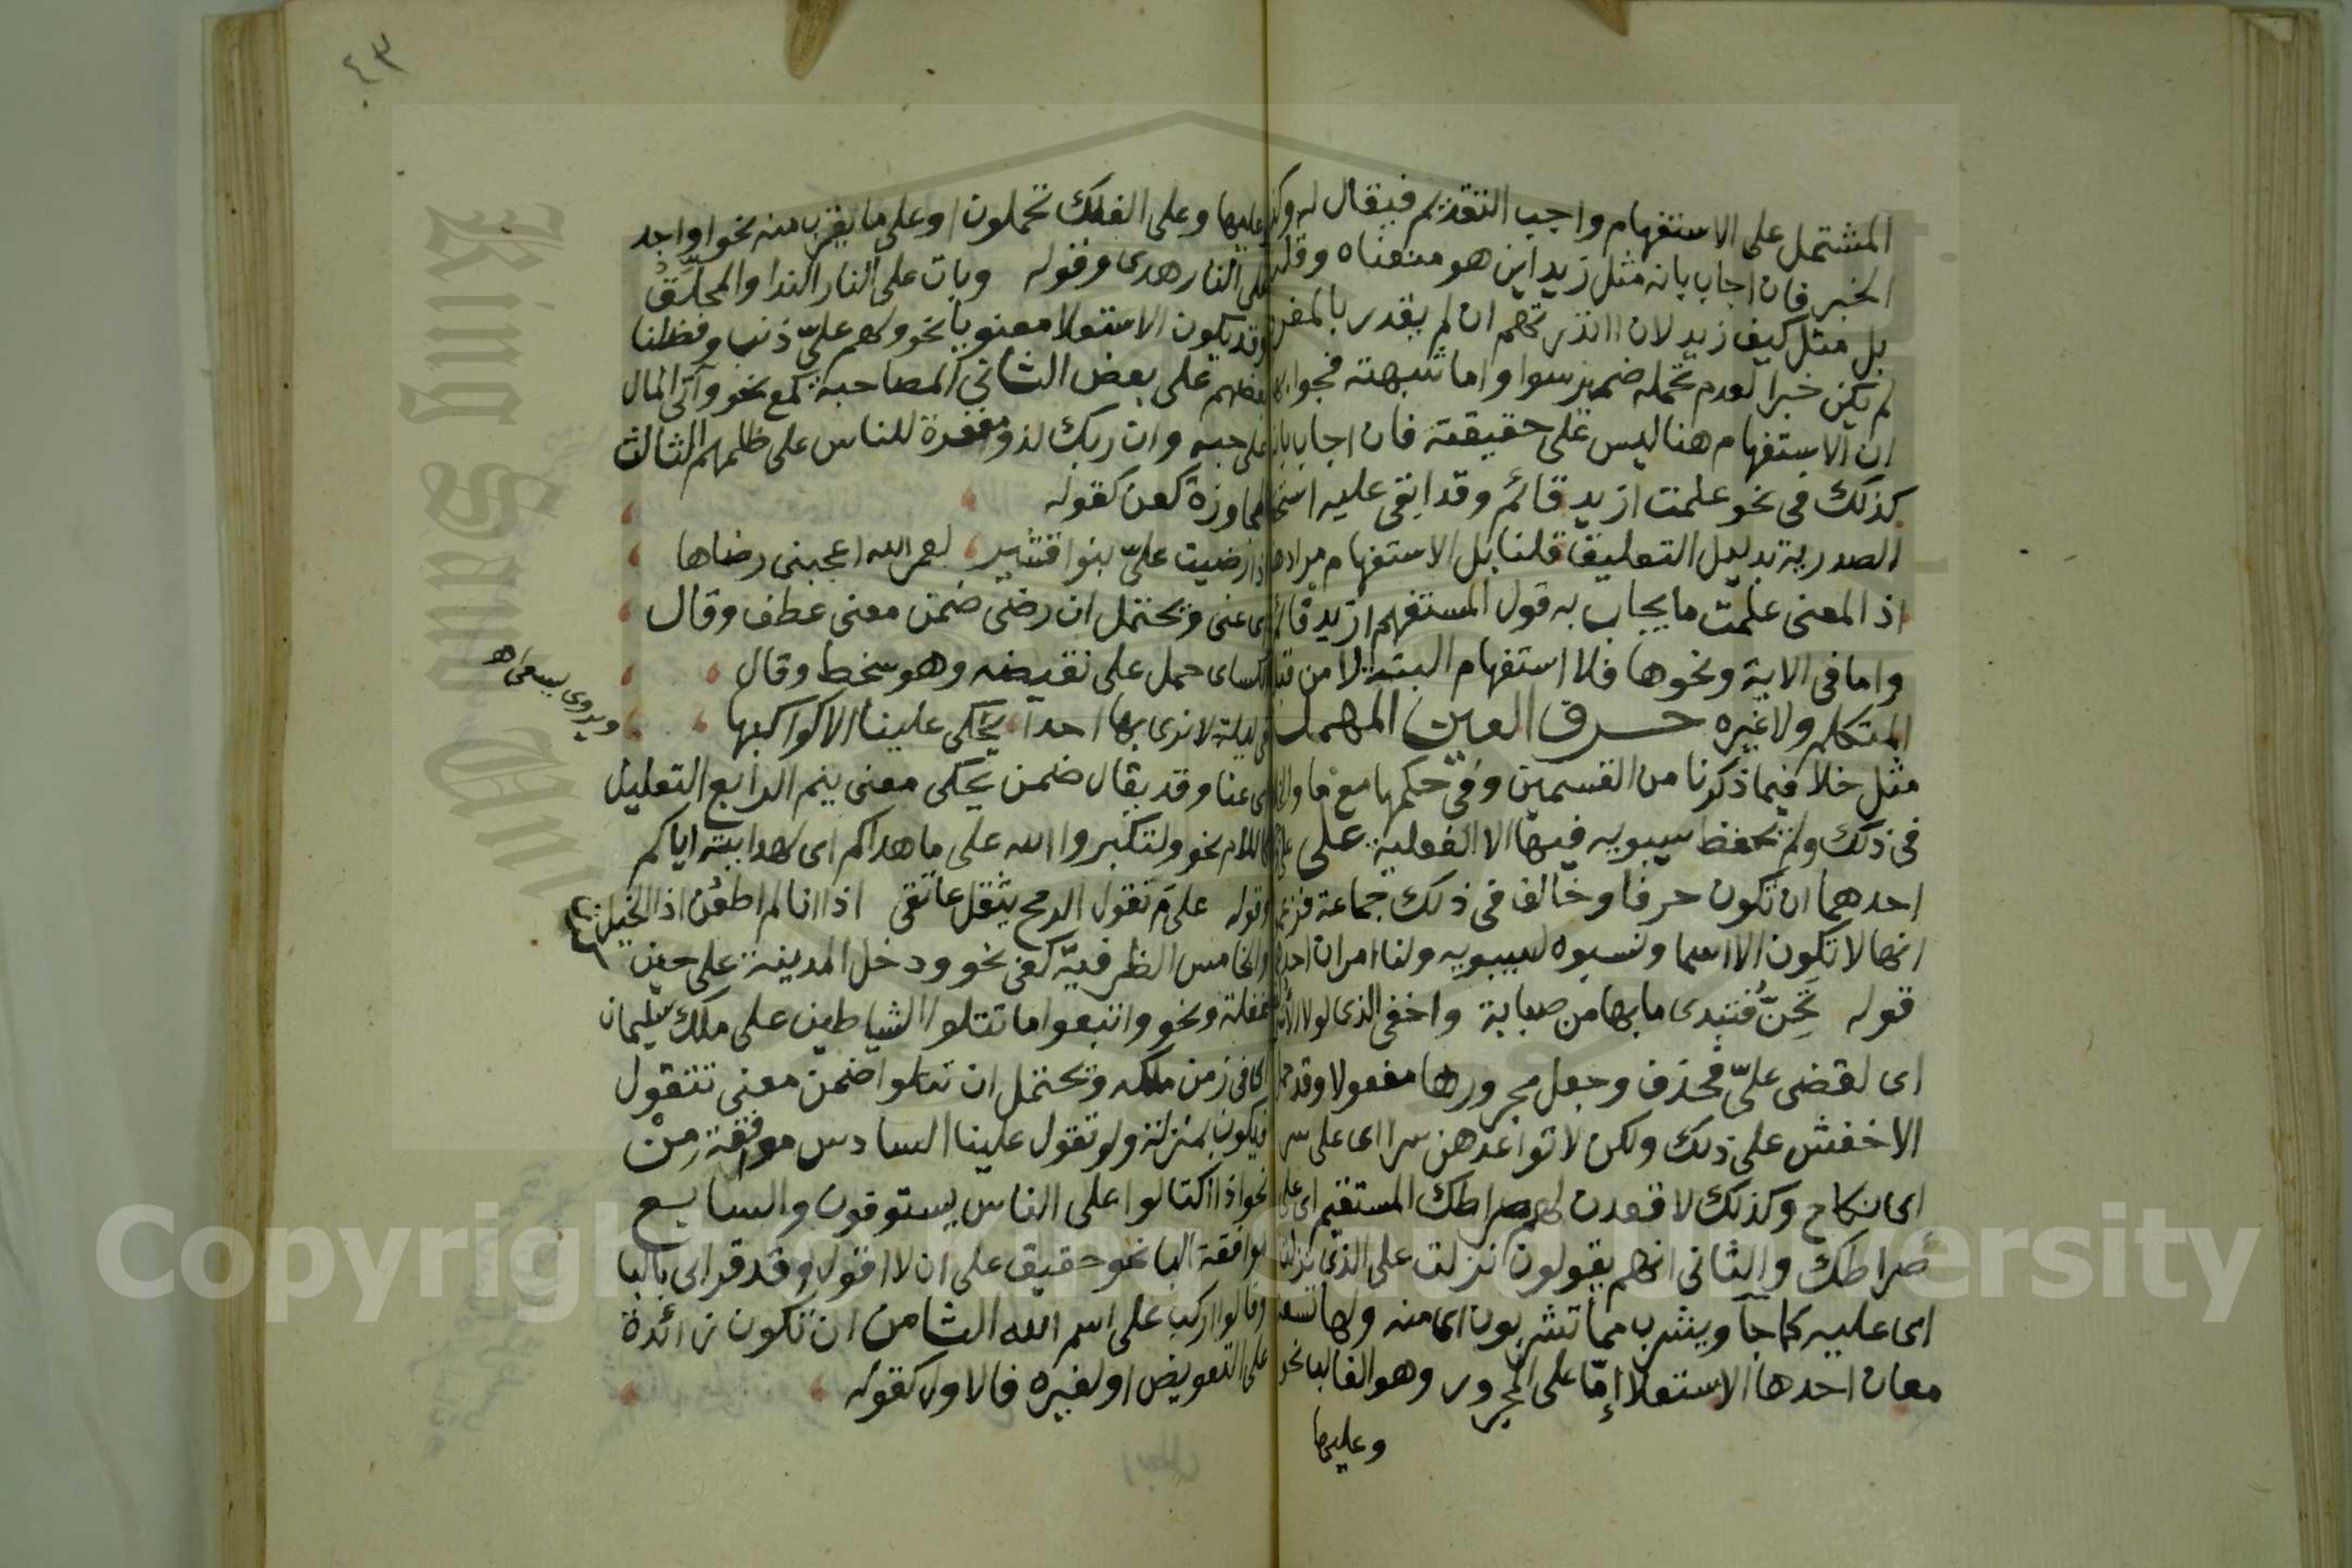 المشتمل على الاستفهام واجب التقديم فيقال له وكذا
الخبر فان اجاب بانه مثل زيد اين هو منعناه وقلنا
بل مثل كيف زيد لان اانذرتهم ان لم يقدر بالمفرد
لم يكن خبرا لعدم تحمله ضمير سوا واما شبهته فجوابها
ان الاستفهام هنا ليس على حقيقته فان اجاب بانه
كذلك في نحو علمت ازيد قائم وقد ابقى عليه استحقاق
الصدرية بدليل التعليق قلنا بل الاستفهام مراد هنا
اذ المعنى علمت ما يجاب به قول المستفهم ازيد قائم
واما في الاية ونحوها فلا استفهام البتة لا من قبل
المتكلم ولا غيره حرف العين المهملة
مثل خلا فيما ذكرنا من القسمين وفي حكمها مع ما والخلاف
في ذلك ولم يحفظ سيبويه فيها الا الفعلية على على وجهين
احدهما ان تكون حرفا وخالف في ذلك جماعة فزعموا
انها لا تكون الا اسما ونسبوه لسيبويه ولنا امران احدهما
قوله تَحِنُّ فتبدى ما بها من صبابة واخفي الذي لولا الاسى
اى لقضى عليّ فحذف وجعل مجرورها مفعولا وقد حمل
الاخفش على ذلك ولكن لا تواعدهن سرا اى على سر
اى نكاح وكذلك لاقعدن لهم صراطك المستقيم اى على
صراطك والثاني انهم يقولون نزلت على الذي نزلت
اى عليه كما جآ ويشرب مما تشربون اى منه ولها تسعة
معان احدها الاستعلا إمّا على المجرور وهو الغالب نحو
وعليها
٤٣
وعليها وعلى الفلك تحملون او على ما يقرب منه نحو او اجد
على النار هدى وقوله وبات على النار الندا والمحلّقُ
وقد يكون الاستعلا معنويا نحو ولهم عليّ ذنب وفضلنا
بعضهم على بعض الثاني المصاحبة كمع نحو وآتى المال
على حبه وان ربك لذو مغفرة للناس على ظلمهم الثالث
المجاوزة كعن كقوله
اذا رضيت عليّ بنو اقشير لعمر الله اعجبني رضاها
اى عنى ويحتمل ان رضى ضمن معنى عطف وقال
الكساى حمل على نقيضه وهو سخط وقال
في ليلة لا نرى بها احدا يحكى علينا الا كواكبها
اى عنا وقد يقال ضمن يحكى معنى ينم الرابع التعليل
كاللام نحو ولتكبروا الله على ما هداكم اى لهدايته اياكم
وقوله علىمَ تقول الرمح يثقل عاتقي اذا انا لم اطعُن اذا الخيل
والخامس الظرفيّة كفى نحو ودخل المدينة على حين
غفلة ونحو واتبعوا ما تتلوا الشياطين على ملك سليمان
اى في زمن ملكه ويحتمل ان تتلوا ضمن معنى تتقول
فيكون بمنزلة ولو تقول علينا السادس موافقة مِنْ
نحو اذا اكتالوا على الناس يستوفون والسابع
موافقة البا نحو حقيق على ان لا اقول وقد قراى بالبا
وقالوا اركب على اسم الله الثامن ان تكون زائدة
على التعويض او لغيره فالاول كقوله